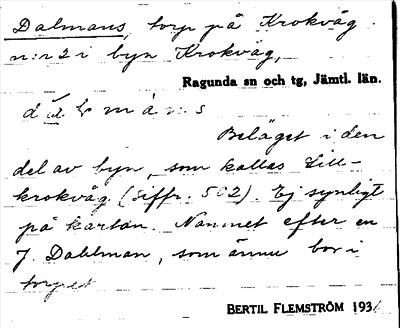 Dalmans, torp på Krokvåg
n:r 2 i byn Krokvåg,
Ragunda sn och tg, Jämtl. län.
Beläget i den
del av byn, som kallas Lill-
krokvåg (siffr. 562). Ej synligt
på kartan. Namnet efter en
J. Dahlman, som ännu bor i
torpet
BERTIL FLEMSTRÖM 193